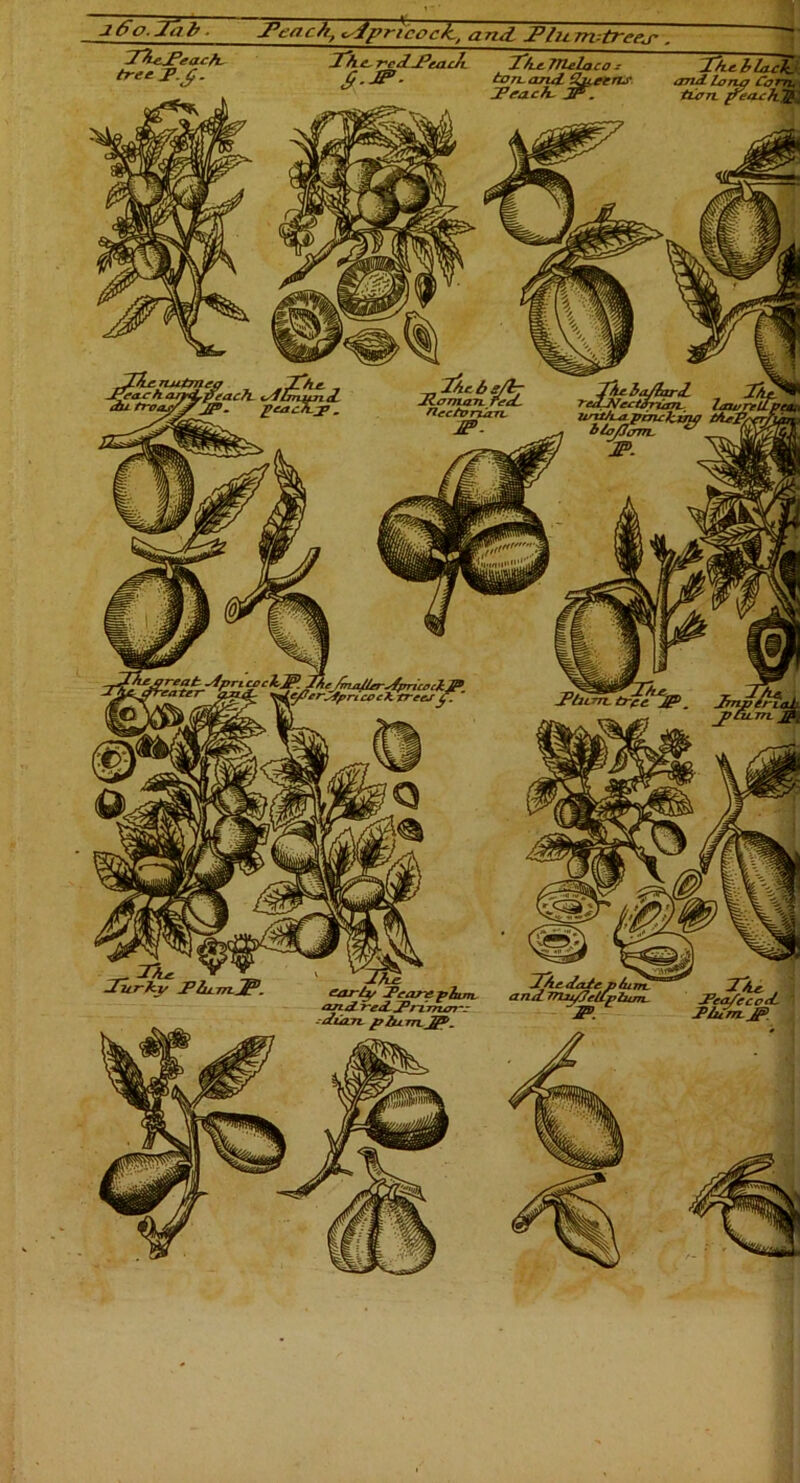 160. Tab. Peach, Apricock, and Plum-trees.
The Peach
tree P. G.
The red Peach
G. P.
The Melaco =
ton and Queens
Peach P.
The black
and Long Carn
tion peach P
The nutmeg
Peach and peach
du troas P.
The
Almund
peach P.
The best
Roman red
nectorian
P.
The bastard
red Nectorian
with a pincking
blossom
P.
The
laurell pea
the Persian
The great Apricock P. The smaller Apricock P.
The greater and lesser Apricock trees G.
The
Plum tree P.
The
Imperial
plum P
The
Turky Plum P.
The
early Peare plum
and red Primor-
-dian plum P.
The date plum
and mussell plum
P.
The
Peasecod
Plum P.